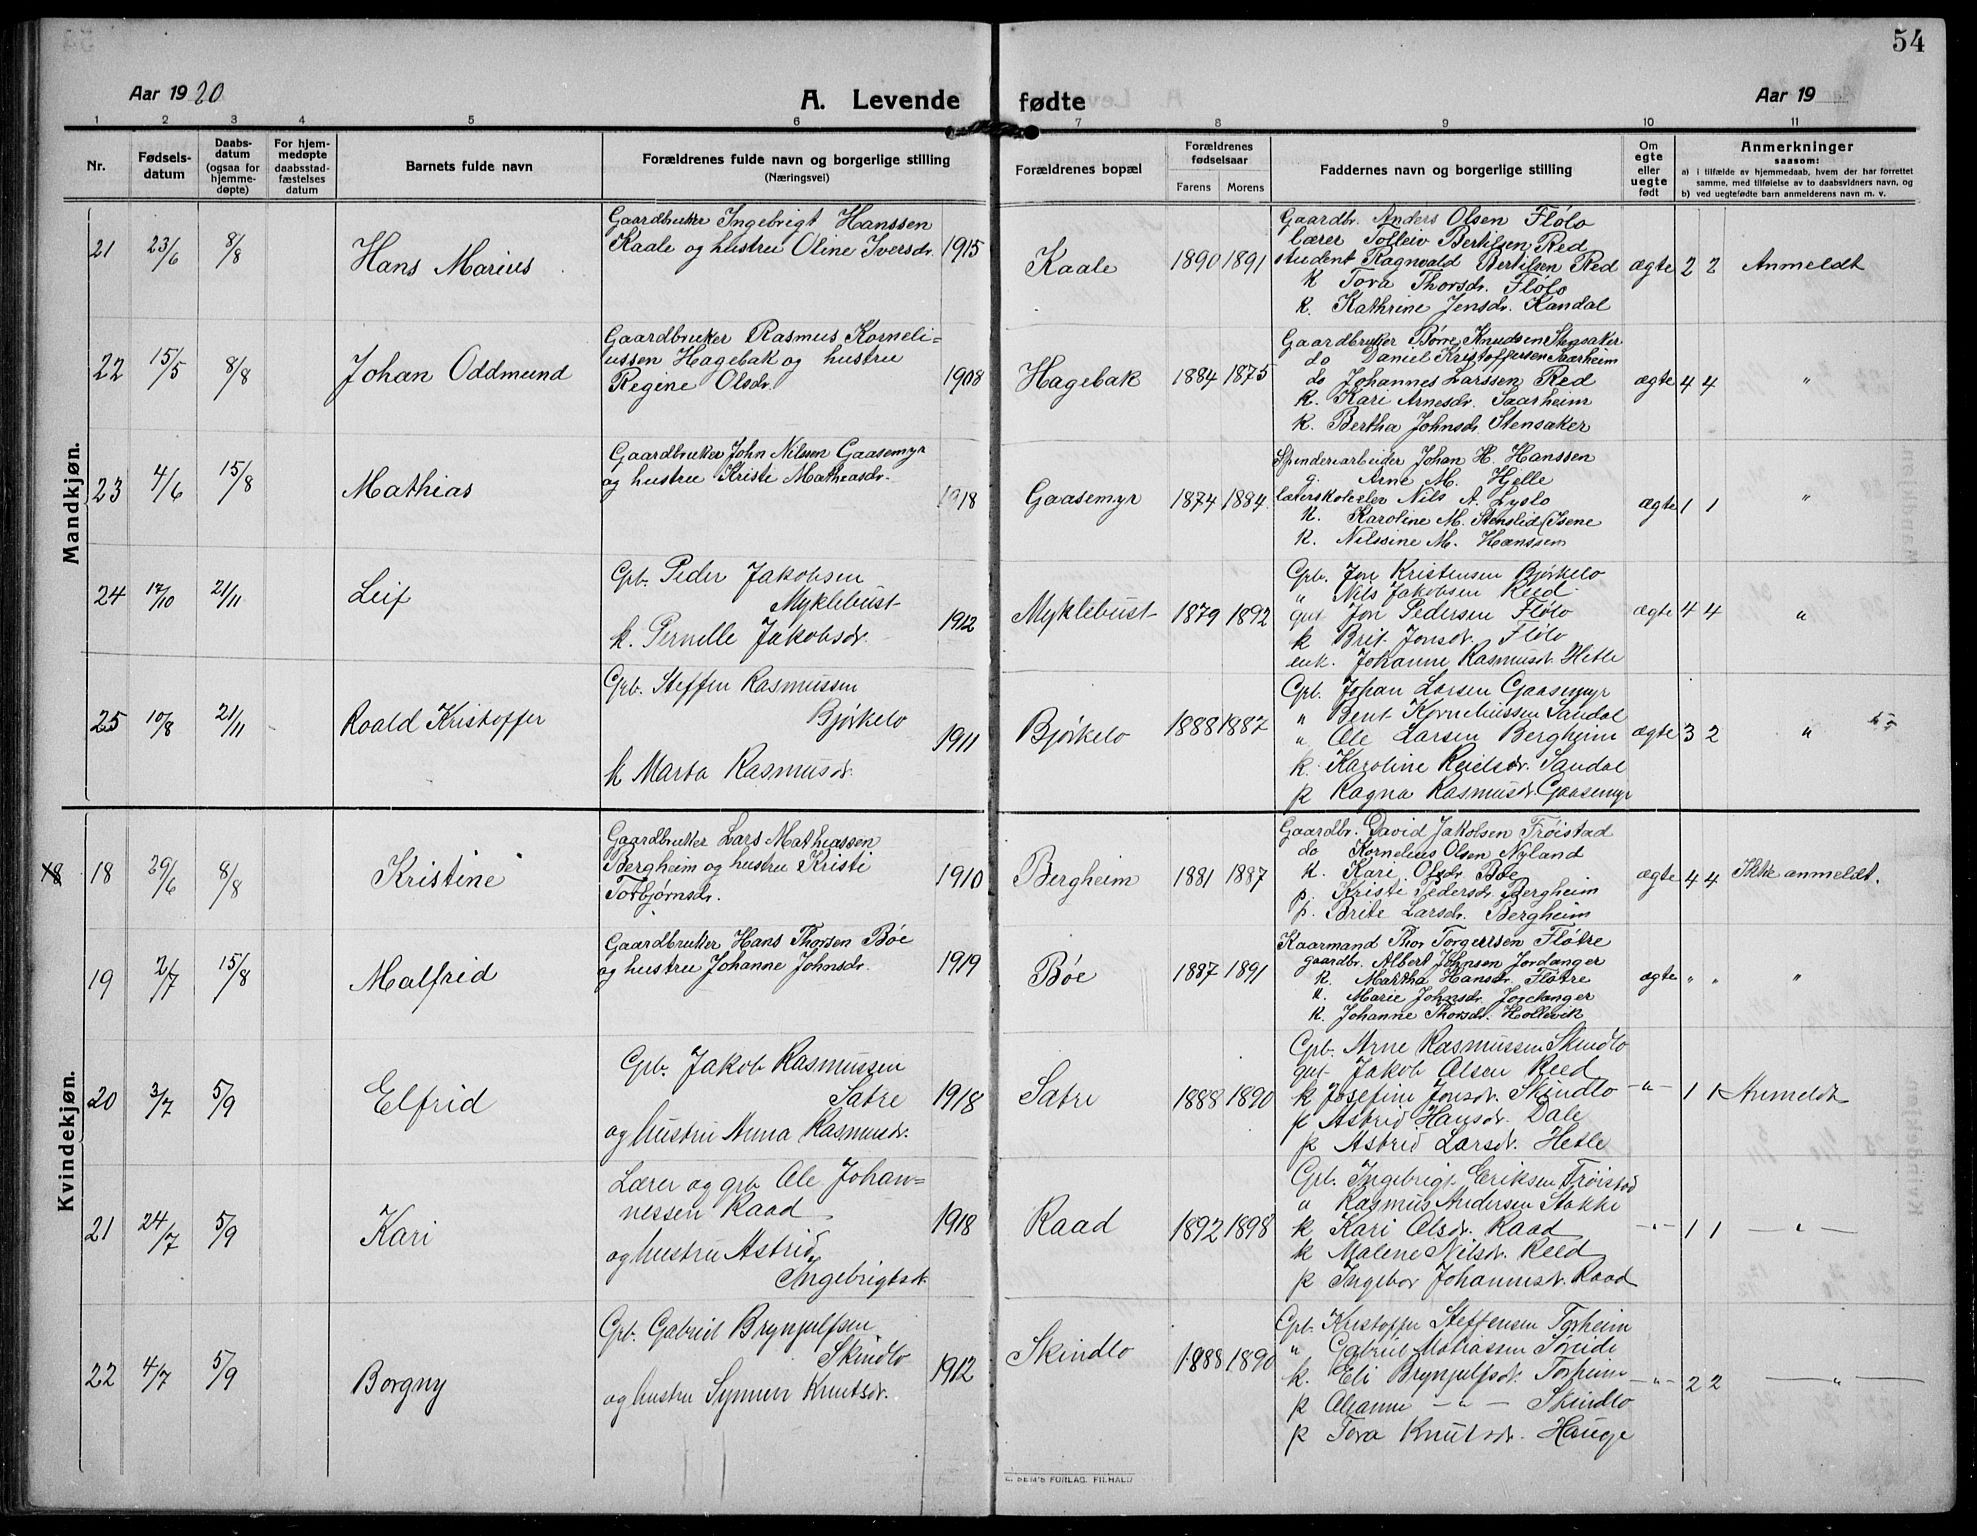 54
Aar 1920
A. Levende fødte
Aar 19
1 2 3 4 5 6 7 8 9 10 11
Nr.
Fødsels-
datum
Daabs-
datum
(ogsaa for
hjemme-
døpte)
For hjem-
medøpte
daabsstad-
fæstelses
datum
Barnets fulde navn
Forældrenes fulde navn og borgerlige stilling
(Næringsvei)
Forældrenes bopæl
Forældrenes
fødselsaar
Farens Morens
Faddernes navn og borgerlige stilling
Om
egte
eller
uegte
født
Anmerkninger
saasom:
a) i tilfælde av hjemmedaab, hvem der har forrettet
samme, med tilføielse av to daabsvidners navn, og
b) ved uegtefødte barn anmelderens navn m. v.
Mandkjøn.
21 23/6 8/8 Hans Marius
Gaardbruker Ingebrigt Hanssen
Kaale og hustru Oline Iversdr. 1915
Kaale 1890 1891
Gaardbr. Anders Olsen Flölo
lærer Tolleiv Bertilsen Red
student Ragnvald Bertilsen Red
k Tora Thorsdr. Flölo
k. Kathrine Jensdr. Kandal
ægte 2 2 Anmeldt
22 15/5 8/8 Johan Oddmund
Gaardbruker Rasmus Korneli=
ussen Hagebak og hustru
Regine Olsdr. 1908
Hagebak 1884 1875
Gaardbruker Børre Knudsen
do Daniel Kristoffersen Saarheim
do Johannes Larssen Red
k. Kari Arnesdr. Saarheim
k. Bertha Johnsdr. Stensaker
ægte 4 4 "
23 4/6 15/8 Mathias
Gaardbruker John Nilssen Gaasemyr
og hustru Kristi Mathiasdr. 1918
Gaasemyr 1874 1884.
Spinderiarbeider Johan H. Hanssen
g. Arne M. Hjelle
Nils A. Lyslo
k. Karoline M. Stenslid
k. Nilssine M. Hanssen
ægte 1 1 "
24 17/10 21/11 Leif
Grb. Peder Jakobsen
Myklebust
k. Pernille Jakobsdr. 1912
Myklebust 1879 1892
Grb. Jon Kristensen Bjørkelo
" Nils Jakobsen Reed
gut Jon Pedersen Flølo
k Brit Jonsdr. Flølo
enk. Johanne Rasmusdr. Hetle
ægte 4 4 "
25 10/8 21/11 Roald Kristoffer
Grb. Steffen Rasmussen
Bjørkelo
k Marta Rasmusdr. 1911
Bjørkelo 1888 1887
Grb. Johan Larsen Gaasemyr
" Bent Korneliussen Sandal
" Ole Larsen Bergheim
k. Karoline Sandal
p Ragna Rasmusdr. Gaasemyr
ægte 3 2 "
Kvindekjøn.
18 8/8 Kristine
Gaardbruker Lars Mathiassen
Bergheim og hustru Kristi
Torbjørnsdr. 1910
Bergheim 1881 1887
Gaardbr. David Jakobsen Trøistad
do Kornelius Olsen Nyland
k. Kari Olsdr. Bøe
p. Kristi Pedersdr. Bergheim
p. Brite Larsdr. Bergheim
ægte 4 4 Ikke anmeldt.
19 2/7 15/8 Malfrid
Gaardbruker Hans Thorsen Böe
og hustru Johanne Johnsdr. 1919
Böe 1887 1891
Kaarmand Thor Torgersen Flötre
gaardbr. Albert Johnsen Jordanger
k. Martha Hansdr. Flötre
k. Marie Johnsdr. Jordanger
k. Johanne Thorsdr. Hollevik
ægte " " "
20 3/7 5/9 Elfrid
Grb. Jakob Rasmussen
Sætre 1918
og hustru Anna Rasmusdr.
Sætre 1888 1890
Grb. Arne Rasmussen Skindlo
gut Jakob Olsen Reed
k Josefine Jonsdr. Skindlo
p Astrid Hansdr. Dale
p Astrid Larsdr. Hetle
–"– 1 1 Anmeldt
21 24/7 5/9 Kari
Lærer og grb. Ole Johan=
nessen Raad 1918
og hustru Astrid
Ingebrigtsdr.
Raad 1892 1898
Grb. Ingebrigt Eriksen Trøistad
" Rasmus Andersen Stokke
k Kari Olsdr. Raad
k Malene Nilsdr. Reed
p Ingebor Johannesdr. Raad
–"– 1 1 –"–
22 4/7 5/9 Borgny
Grb. Gabriel Brynjulfsen
Skindlo 1912
og hustru Synneve Knutsdr.
Skindlo 1888 1890
Grb. Kristoffer Steffensen Torheim
" Gabriel Matiassen
k. Eli Brynjulfsdr. Torheim
p Oleanne –"– Skindlo
p Tora Knutsdr. Hauge
–"– 2 2 –"–